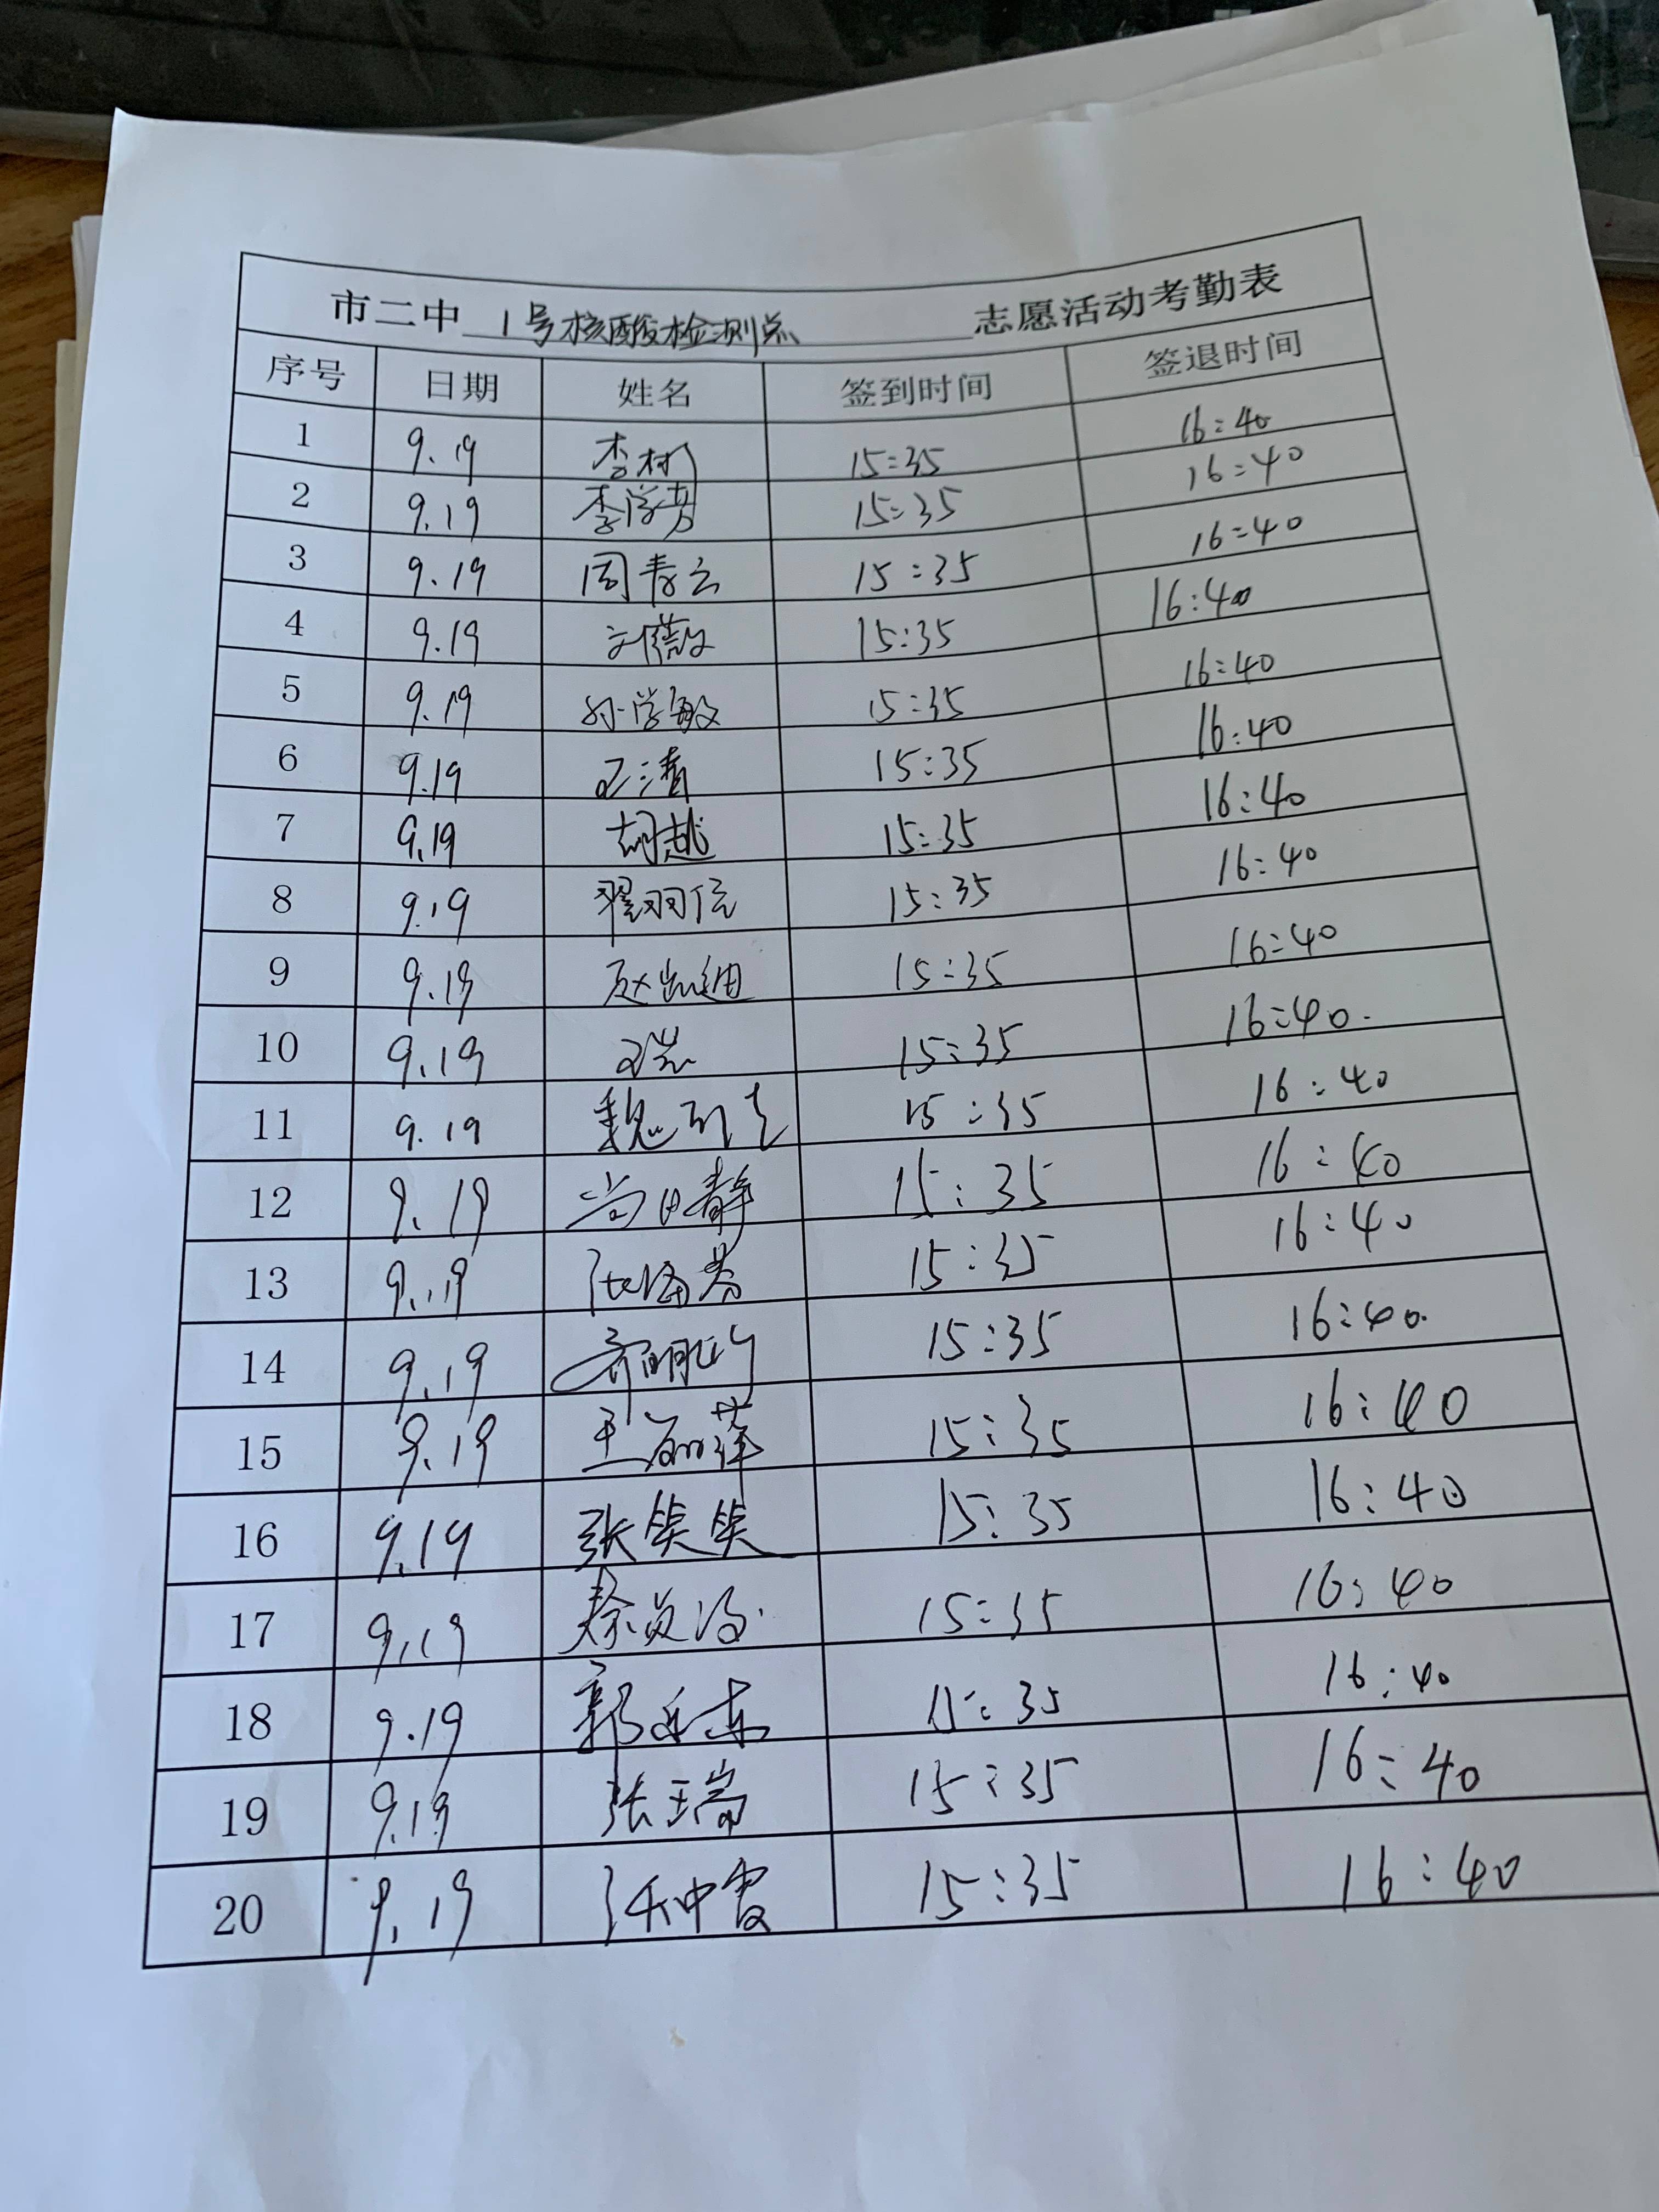 市二中 1号核酸检测点 志愿活动考勤表
序号 日期 姓名 签到时间 签退时间
1 9.19 李树 15:35 16:40
2 9.19 李学芳 15:35 16:40
3 9.19 周春云 15:35 16:40
4 9.19 15:35 16:40
5 9.19 孙学敏 15:35 16:40
6 9.19 王清 15:35 16:40
7 9.19 胡越 15:35 16:40
8 9.19 翟羽佳 15:35 16:40
9 9.19 赵凯迪 15:35 16:40
10 9.19 15:35 16:40
11 9.19 魏 15:35 16:40
12 9.19 静 15:35 16:40
13 9.19 15:35 16:40
14 9.19 15:35 16:40
15 9.19 王丽萍 15:35 16:40
16 9.19 张笑笑 15:35 16:40
17 9.19 15:35 16:40
18 9.19 郭 15:35 16:40
19 9.19 张瑞 15:35 16:40
20 9.19 张中霞 15:35 16:40